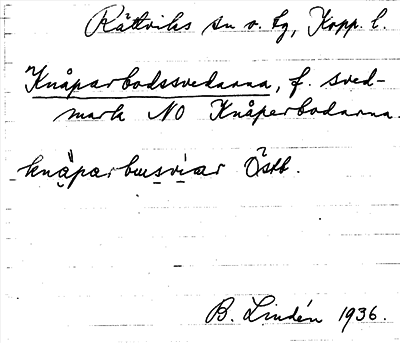 Rättviks sn o. tg, Kopp. l.
Knåparbodssvedarna, f. sved-
mark NO Knåperbodarna.
knåparbusviar Östb.
B. Lindén 1936.